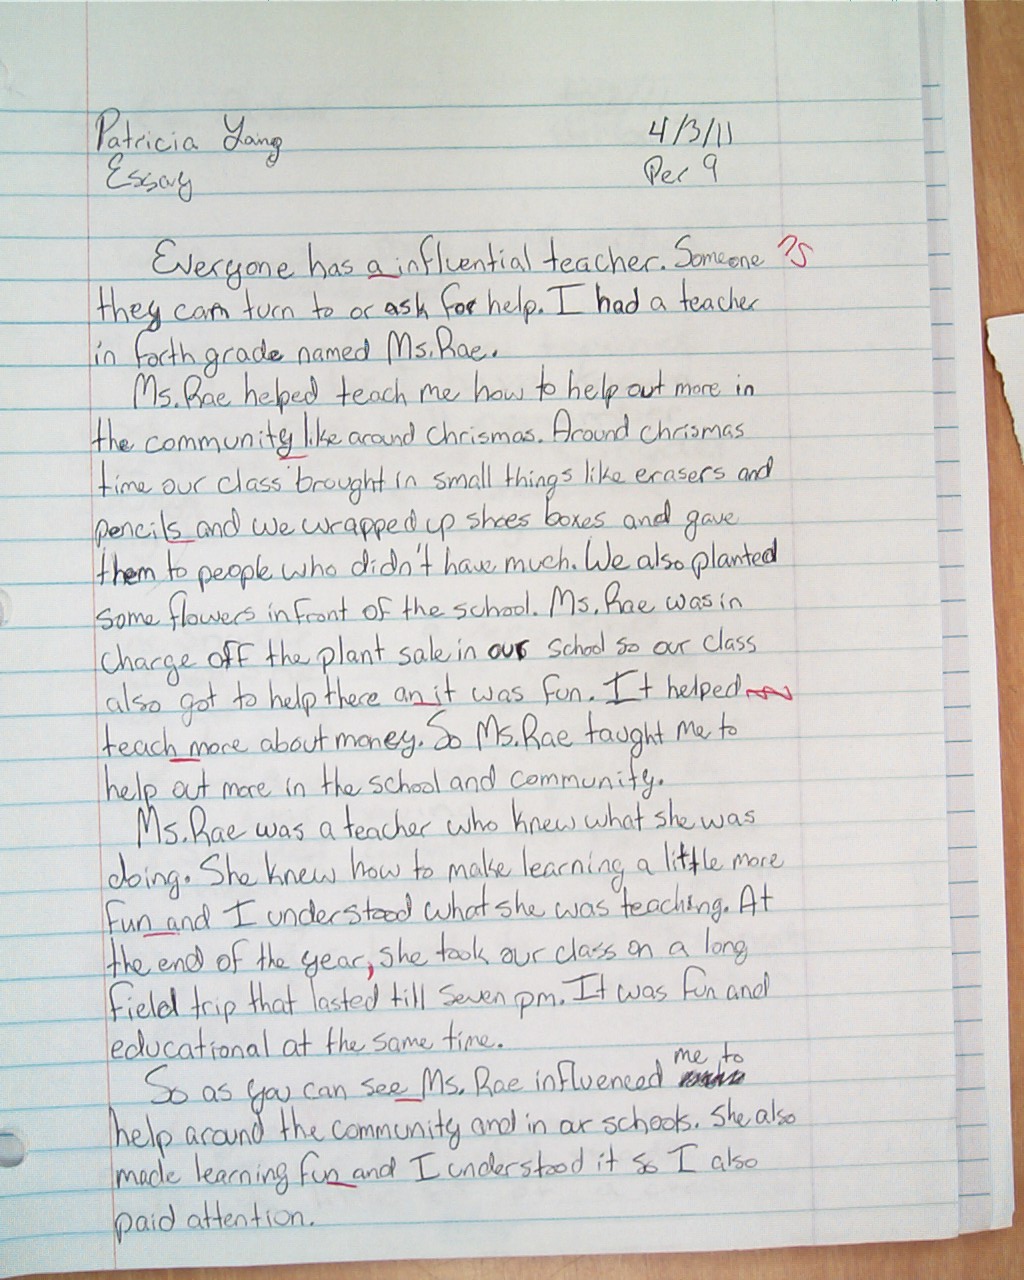 Patricia Yang 4/3/11
Essay Per 9
Everyone has a influential teacher. Someone
they can turn to or ask for help. I had a teacher
in forth grade named Ms. Rae.
Ms. Rae helped teach me how to help out more in
the community like around Chrismas. Around chrismas
time our class brought in small things like erasers and
pencils and we wrapped up shoes boxes and gave
them to people who didn't have much. We also planted
some flowers infront of the school. Ms. Rae was in
charge off the plant sale in our school so our class
also got to help there an it was fun. It helped
teach more about money. So Ms. Rae taught me to
help out more in the school and community.
Ms. Rae was a teacher who knew what she was
doing. She knew how to make learning a little more
fun and I understood what she was teaching. At
the end of the year, she took our class on a long
field trip that lasted till seven pm. It was fun and
educational at the same time.
So as you can see Ms. Rae influenced me to
help around the community and in our schools. She also
made learning fun and I understood it so I also
paid attention.